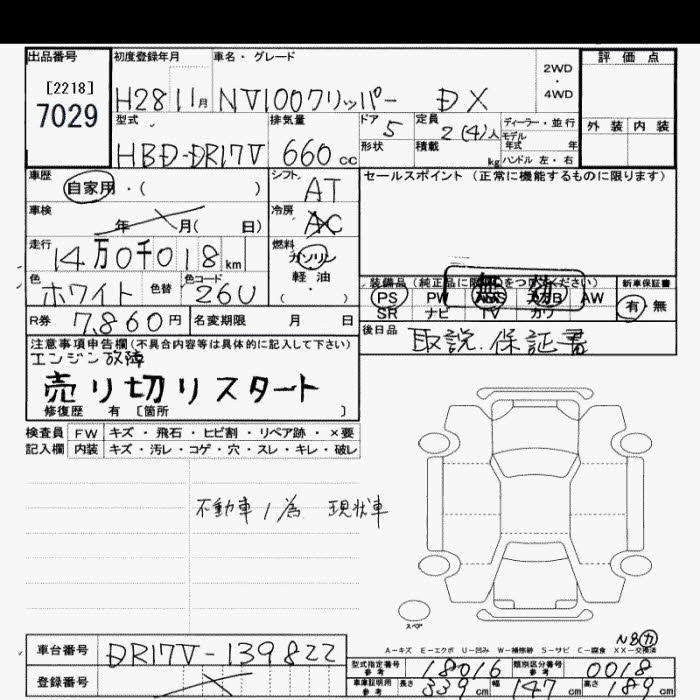 出品番号
[2218]
7029
初度登録年月
H28 11月
車名・グレード
NV100クリッパー DX
2WD
・
4WD
評価点
外装 内装
型式
HBD-DR17V
排気量
660cc
ドア 5
形状
定員 2(4)人
積載 kg
ディーラー・並行
モデル
年式 年
ハンドル 左・右
車歴
自家用・( )
シフト
AT
車検
年 月( 日)
冷房
AC
走行
14万0千018km
燃料
ガソリン
軽油
( )
色
ホワイト
色替
色コード
26U
セールスポイント(正常に機能するものに限ります)
装備品
PS PW AW
SR ナビ TV カワ
新車保証書
有・無
R券 7,860円
名変期限 月 日
後日品
取説.保証書
注意事項申告欄(不具合内容等は具体的に記入して下さい)
エンジン故障
売り切りスタート
修復歴 有 [箇所 ]
検査員 FW キズ・飛石・ヒビ割・リペア跡・×要
記入欄 内装 キズ・汚レ・コゲ・穴・スレ・キレ・破レ
不動車ノ為 現状車
スペア
N8(カ)
A-キズ E-エクボ U-凹み W-補修跡 S-サビ C-腐食 XX-交換済
車台番号 DR17V-139822
登録番号
型式指定番号
参考
18016
類別区分番号
参考
0018
車庫証明用
参考
長さ 339cm 幅 147cm 高さ 189cm